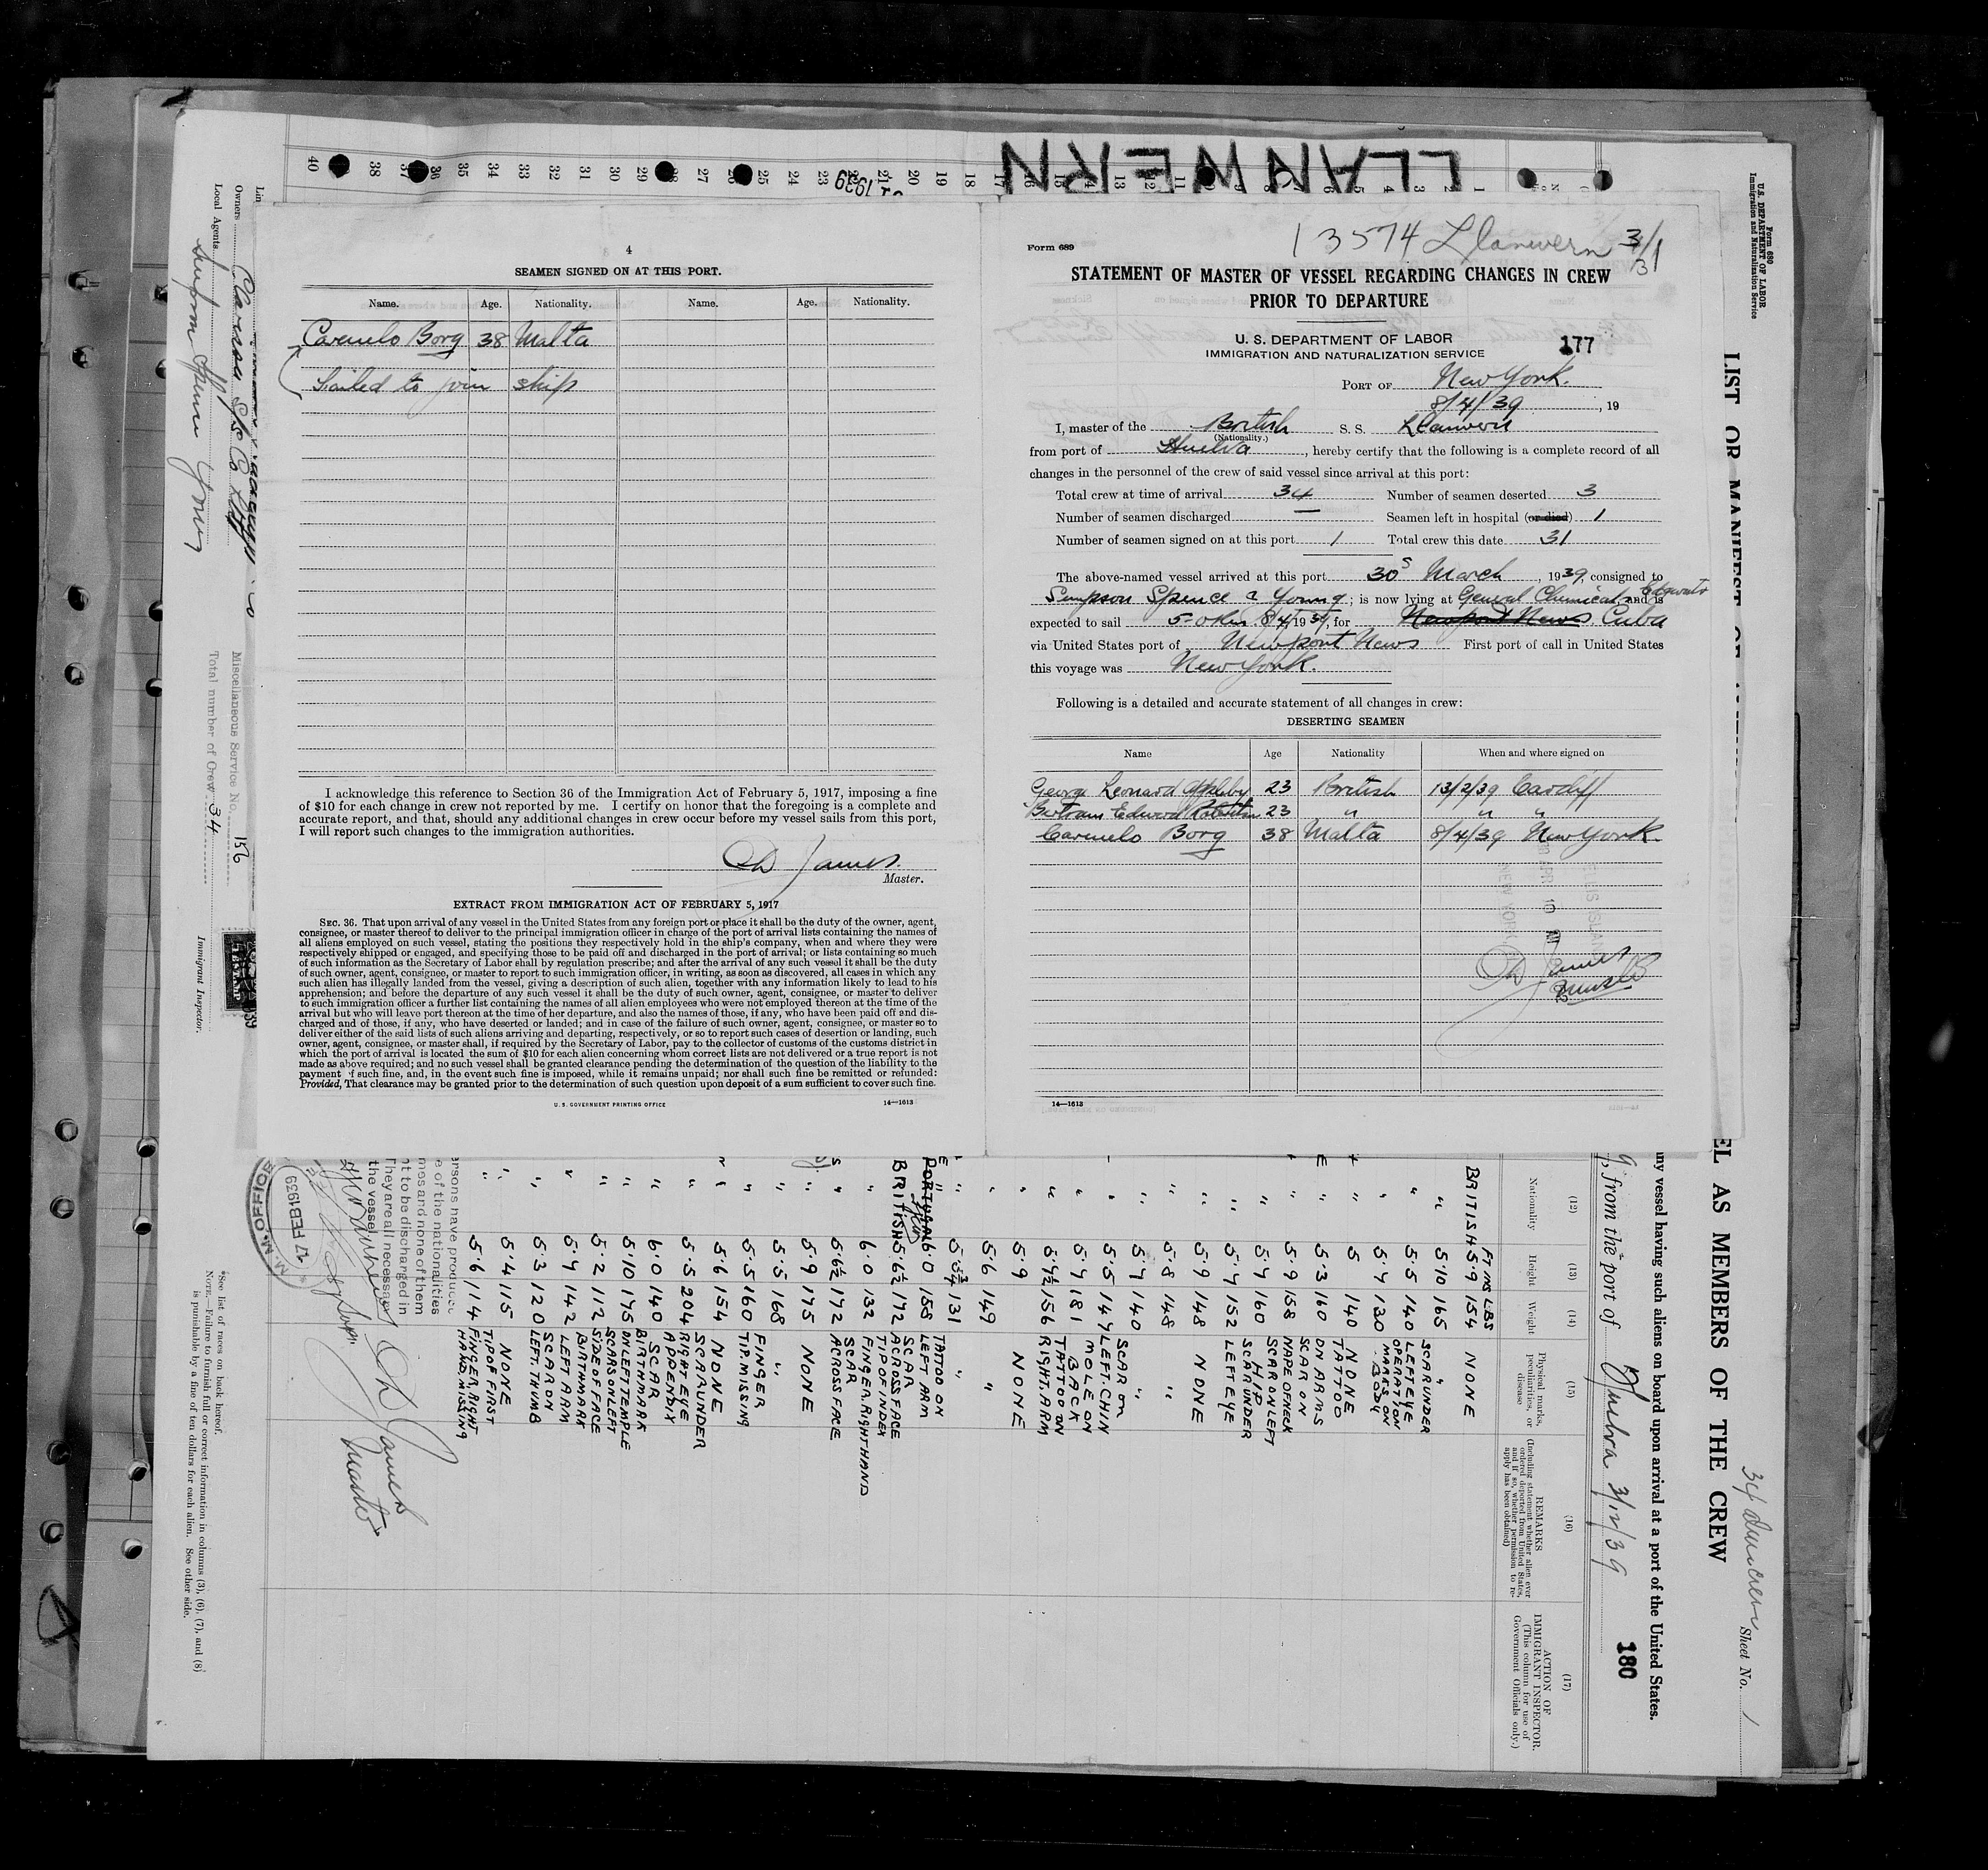 LLANWERN
4
SEAMEN SIGNED ON AT THIS PORT.
Name. Age. Nationality. Name. Age. Nationality.
Carmelo Borg 38 Malta
Failed to join ship
I acknowledge this reference to Section 36 of the Immigration Act of February 5, 1917, imposing a fine
of $10 for each change in crew not reported by me. I certify on honor that the foregoing is a complete and
accurate report, and that, should any additional changes in crew occur before my vessel sails from this port,
I will report such changes to the immigration authorities.
James.
Master.
EXTRACT FROM IMMIGRATION ACT OF FEBRUARY 5, 1917
SEC. 36. That upon arrival of any vessel in the United States from any foreign port or place it shall be the duty of the owner, agent,
consignee, or master thereof to deliver to the principal immigration officer in charge of the port of arrival lists containing the names of
all aliens employed on such vessel, stating the positions they respectively hold in the ship's company, when and where they were
respectively shipped or engaged, and specifying those to be paid off and discharged in the port of arrival; or lists containing so much
of such information as the Secretary of Labor shall by regulation prescribe; and after the arrival of any such vessel it shall be the duty
of such owner, agent, consignee, or master to report to such immigration officer, in writing, as soon as discovered, all cases in which any
such alien has illegally landed from the vessel, giving a description of such alien, together with any information likely to lead to his
apprehension; and before the departure of any such vessel it shall be the duty of such owner, agent, consignee, or master to deliver
to such immigration officer a further list containing the names of all alien employees who were not employed thereon at the time of the
arrival but who will leave port thereon at the time of her departure, and also the names of those, if any, who have been paid off and dis-
charged and of those, if any, who have deserted or landed; and in case of the failure of such owner, agent, consignee, or master so to
deliver either of the said lists of such aliens arriving and departing, respectively, or so to report such cases of desertion or landing, such
owner, agent, consignee, or master shall, if required by the Secretary of Labor, pay to the collector of customs of the customs district in
which the port of arrival is located the sum of $10 for each alien concerning whom correct lists are not delivered or a true report is not
made as above required; and no such vessel shall be granted clearance pending the determination of the question of the liability to the
payment of such fine, and, in the event such fine is imposed, while it remains unpaid; nor shall such fine be remitted or refunded:
Provided, That clearance may be granted prior to the determination of such question upon deposit of a sum sufficient to cover such fine.
U. S. GOVERNMENT PRINTING OFFICE 14—1613
Form 689
13574 Llanwern 3/1
STATEMENT OF MASTER OF VESSEL REGARDING CHANGES IN CREW
PRIOR TO DEPARTURE
U. S. DEPARTMENT OF LABOR
IMMIGRATION AND NATURALIZATION SERVICE
177
PORT OF New York.
8/4/39, 19
I, master of the British S. S. Llanwern
(Nationality.)
from port of Huelva, hereby certify that the following is a complete record of all
changes in the personnel of the crew of said vessel since arrival at this port:
Total crew at time of arrival 34 Number of seamen deserted 3
Number of seamen discharged — Seamen left in hospital (or died) 1
Number of seamen signed on at this port 1 Total crew this date 31
The above-named vessel arrived at this port 30 March, 1939, consigned to
Simpson Spence & Young; is now lying at General Chemical, and is
expected to sail 8/4, 19 , for Newport News Cuba
via United States port of Newport News First port of call in United States
this voyage was New York.
Following is a detailed and accurate statement of all changes in crew:
DESERTING SEAMEN
Name Age Nationality When and where signed on
George Leonard Appleby 23 British 13/2/39 Cardiff
Bertram Edward 23 " " "
Carmelo Borg 38 Malta 8/4/39 New York
ELLIS ISLAND
NEW YORK
James
14—1613
Form 680
U.S. DEPARTMENT OF LABOR
Immigration and Naturalization Service
LIST OR MANIFEST OF
EL AS MEMBERS OF THE CREW
34 Sheet No. 1
any vessel having such aliens on board upon arrival at a port of the United States.
, from the port of Huelva 3/12/39
180
(12) Nationality
(13) Height
(14) Weight
(15) Physical marks, peculiarities, or disease
(16) REMARKS
(Including statement whether alien ever ordered deported from United States, and if so, whether permission to re-apply has been obtained)
(17) ACTION OF IMMIGRANT INSPECTOR.
(This column for use of Government Officials only.)
FT INS LBS
BRITISH 5·9 154 NONE
" 5·10 165 SCAR UNDER LEFT EYE
" 5·5 140 OPERATION MARKS ON BODY
" 5·4 130 NONE
" 5 140 TATTOO ON ARMS
" 5·3 160 SCAR ON NAPE OF NECK
" 5·9 158 SCAR ON LEFT HIP
" 5·4 160 SCAR UNDER LEFT EYE
" 5·4 152
" 5·9 148 NONE
" 5·8 148 "
" 5·4 140 "
" 5·5 147 SCAR ON LEFT. CHIN
" 5·4 181 MOLE ON BACK
" 5·4½ 156 TATTOO ON RIGHT. ARM
" 5·9 NONE
" 5·6 149 "
" 5·5¾ 131 "
PORTUGAL 6·0 158 TATTOO ON LEFT ARM
BRITISH 5·6½ 172 SCAR ACROSS FACE
" 6·0 132 TIP OF INDEX FINGER. RIGHT HAND
" 5·6½ 172 SCAR ACROSS FACE
" 5·9 175 NONE
" 5·5 168 "
" 5·5 160 FINGER TIP. MISSING
" 5·6 154 NONE
" 5·5 204 SCAR UNDER RIGHT EYE
" 6·0 140 APPENDIX SCAR
" 5·10 175 BIRTHMARK ON LEFT TEMPLE
" 5·2 112 SCARS ON LEFT SIDE OF FACE
" 5·4 142 BIRTHMARK LEFT ARM
" 5·3 120 SCAR ON LEFT. THUMB
" 5·4 115 NONE
" 5·6 114 TIP OF FIRST FINGER, RIGHT HAND, MISSING
ersons have produced
e of the nationalities
mos and none of them
nt to be discharged in
They are all necessary
the vessel
M. M. OFFICE
17 FEB 1939
James
Master
Owners
Local Agents Simpson Spence Young
Miscellaneous Service No. 156
Total number of Crew 34
Immigrant Inspector.
*See list of races on back hereof.
NOTE.—Failure to furnish full or correct information in columns (3), (6), (7), and (8)
is punishable by a fine of ten dollars for each alien. See other side.